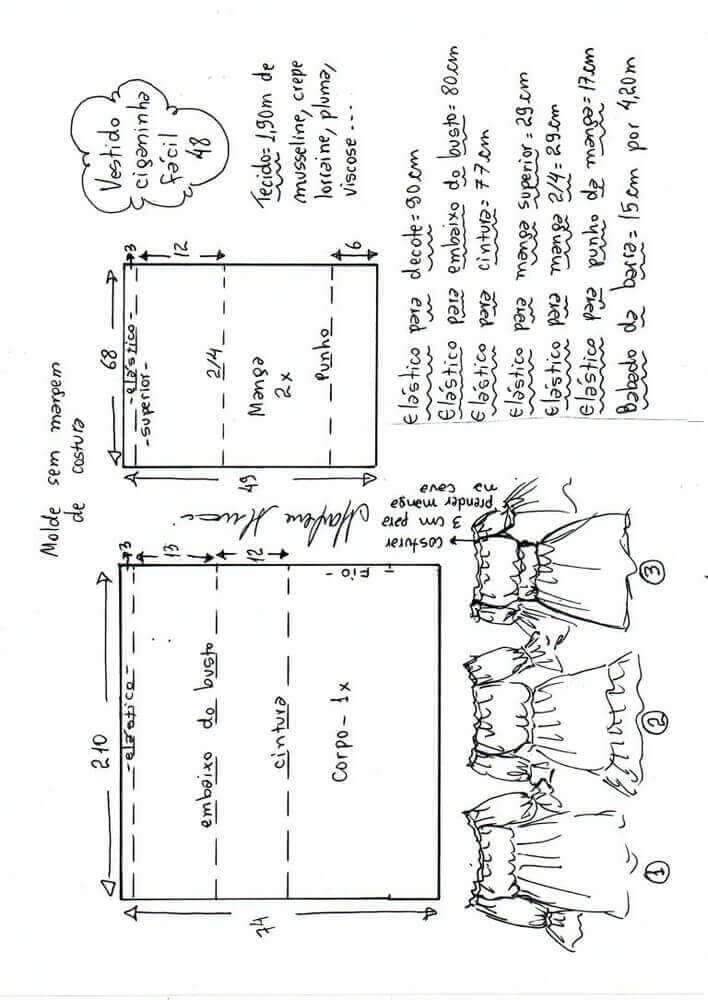 Vestido
ciganinha
fácil
48
Tecido= 1,90m de
musseline, crepe
lorraine, pluma,
viscose...
Molde sem margem
de costura
210
74
3
13
12
-elástico-
embaixo do busto
cintura
Corpo- 1x
-Fio-
68
49
3
12
6
-elástico-
-superior-
2/4
Manga
2x
Punho
Elástico para decote= 90cm
Elástico para embaixo do busto= 80cm
Elástico para cintura= 77cm
Elástico para manga superior= 29cm
Elástico para manga 2/4= 29cm
Elástico para punho da manga= 17cm
Babado da barra= 15cm por 4,20m
costurar
3 cm para
prender manga
na cava
1
2
3